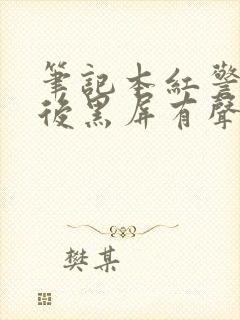 筆記本紅警
後黑屏有聲
樊某